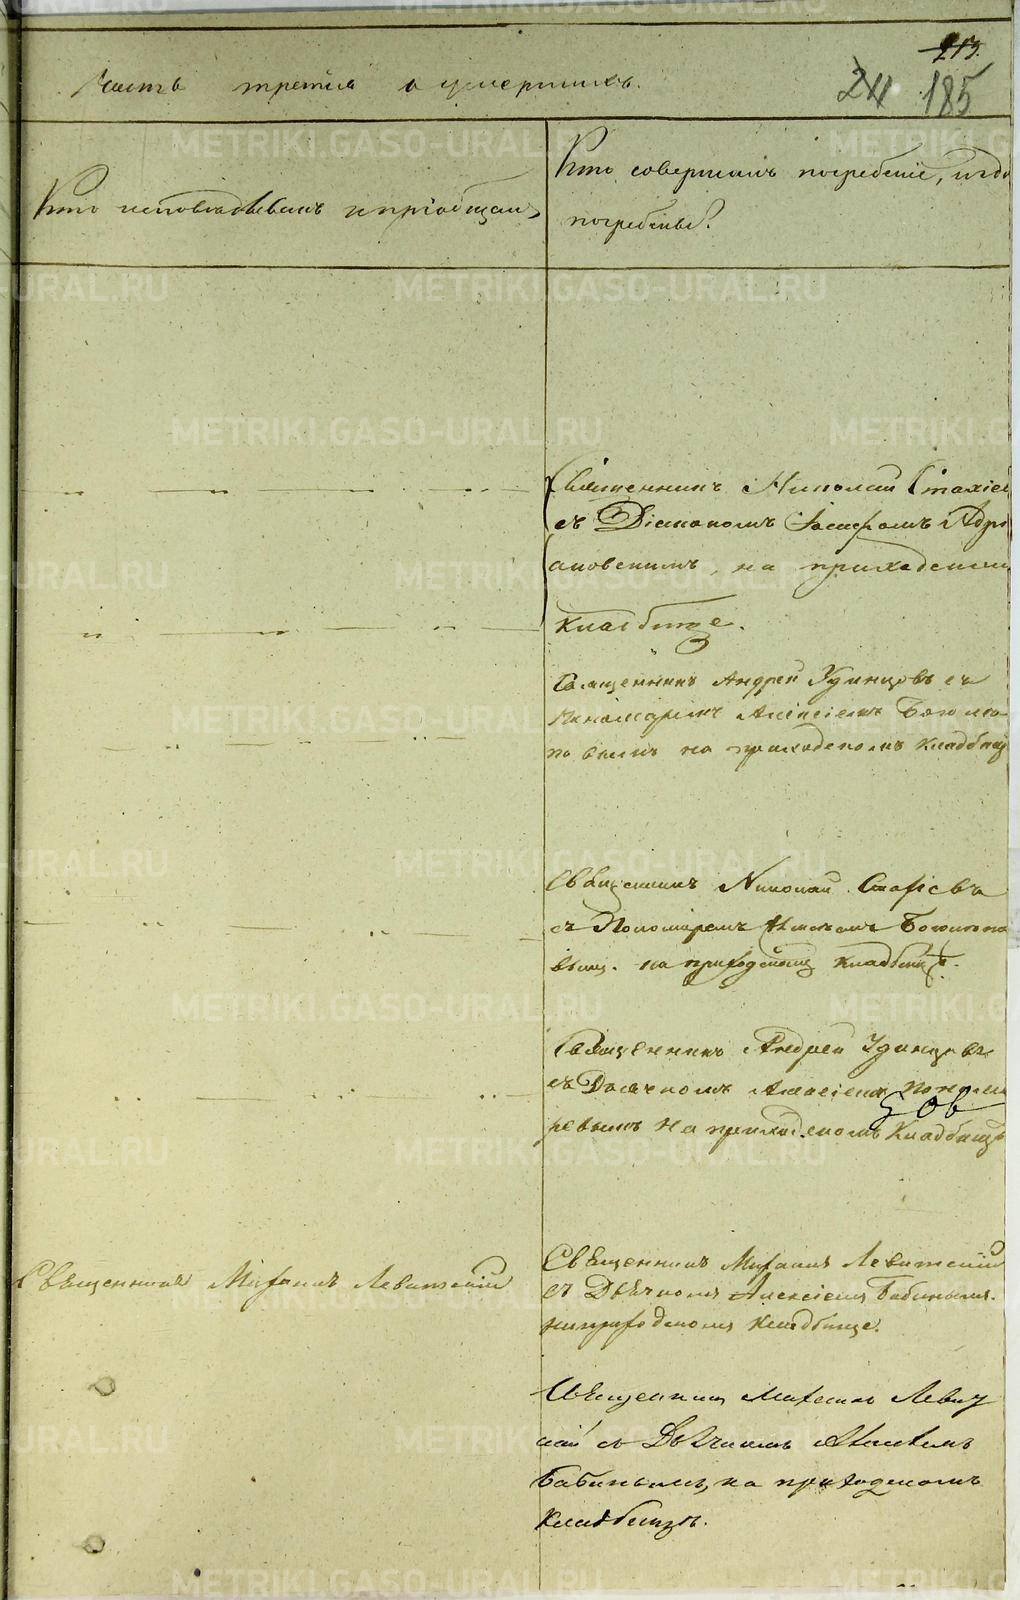 213.
Часть третiя о умершихъ.
24 185
Кто исповѣдывалъ и прiобщалъ
Кто совершалъ погребенiе, и гдѣ
погребены?
Священникъ Николай Стахiев
съ Дiакономъ Iосифомъ Адрi
ановскимъ, на приходскомъ
кладбище.
Священникъ Андрей Удинцовъ съ
Пономаремъ Алексiемъ Боголю-
повымъ на приходскомъ кладбищ
Священникъ Николай Стафiевъ
съ Пономаремъ
вымъ. на приходскомъ кладбищѣ.
Священникъ Андрей Удинцовъ
съ Дьячкомъ Алексiемъ Понома
ревымъ на приходскомъ кладбищѣ
Священникъ Михаилъ Левитскiй
Священникъ Михаилъ Левитскiй
съ Дьячкомъ Алексiемъ Бабинымъ.
на приходскомъ кладбище.
Священникъ Михаилъ Левит
скiй съ Дьячкомъ
Бабинымъ, на приходскомъ
кладбищѣ.
METRIKI.GASO-URAL.RU